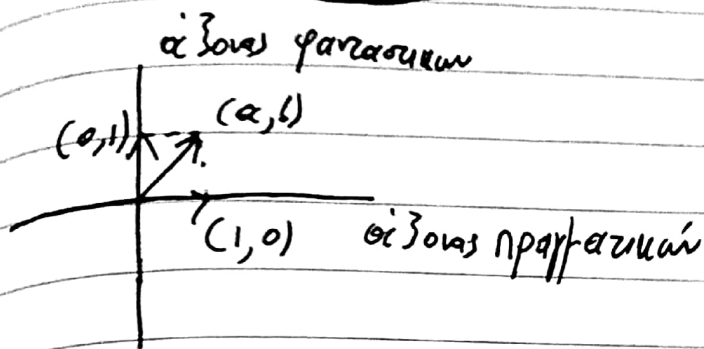 άξονας φανταστικών
(α, β)
(0,1)
(1,0)
άξονας πραγματικών